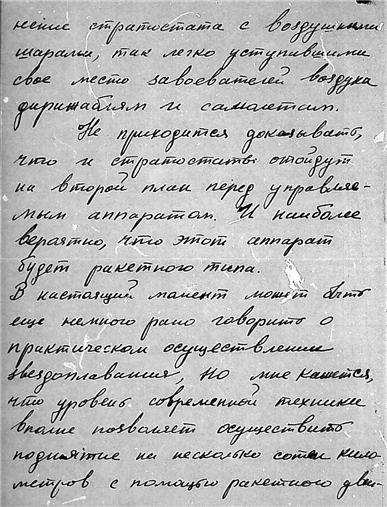 нение стратостата с воздушными
шарами, так легко уступившими
свое место завоевателей воздуха
дирижаблям и самолетам.
Не приходится доказывать,
что и стратостаты отойдут
на второй план перед управляе-
мым аппаратом. И наиболее
вероятно, что этот аппарат
будет ракетного типа.
В настоящий момент может быть
еще немного рано говорить о
практическом осуществлении
звездоплавания, но мне кажется,
что уровень современной техники
вполне позволяет осуществить
поднятие на несколько сотен кило
метров с помощью ракетного дви-